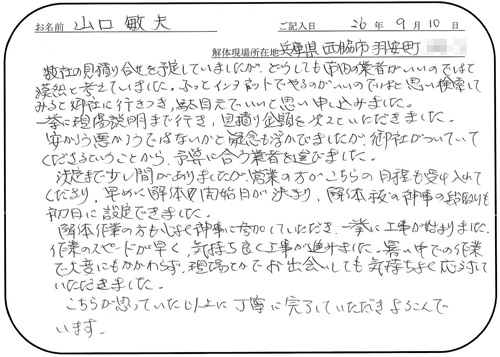 お名前 山口 敏夫 ご記入日 26年 9月 10日
解体現場所在地 兵庫県西脇市羽安町
数社の見積り合せを予定していましたが、どうしても市内の業者がいいのではと
漠然と考えていました。ふっとインターネットでやるのがいいのではと思い検索して
みると御社に行きつき、駄目元でいいと思い申し込みました。
一挙に現場説明まで行き、見積り金額を次々といただきました。
安かろう悪かろうではないかと疑念も浮かびましたが、御社がついていて
くださるということから、予算に合う業者を選びました。
決定まで少し間がありましたが、営業の方がこちらの日程も受け入れて
くださり、早めに解体の開始日が決まり、解体前の神事の段取りも
初日に設定できました。
解体作業の方も心よく神事に参加していただき、一挙に工事が始まりました。
作業のスピードが早く、気持ち良く工事が進みました。暑い中での作業
で大変にもかかわらず、現場とかでお出会いしても気持ちよく応対して
いただきました。
こちらが思っていた以上に丁寧に完了していただきよろこんで
います。